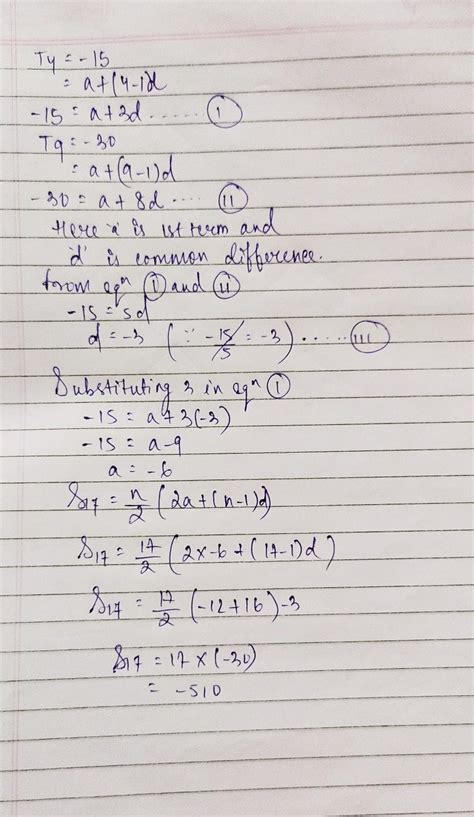 T4 = -15
= a+(4-1)d
-15 = a+3d ...... (I)
T9 = -30
= a+(9-1)d
-30 = a+8d .... (II)
Here 'a' is 1st term and
'd' is common difference.
from eqⁿ (I) and (II)
-15 = 5d
d = -3 (∵ -15/5 = -3) ..... (III)
Substituting 3 in eqⁿ (I)
-15 = a+3(-3)
-15 = a-9
a = -6
S17 = n/2 (2a+(n-1)d)
S17 = 17/2 (2x-6+(17-1)d)
S17 = 17/2 (-12+16)-3
S17 = 17 x (-30)
= -510